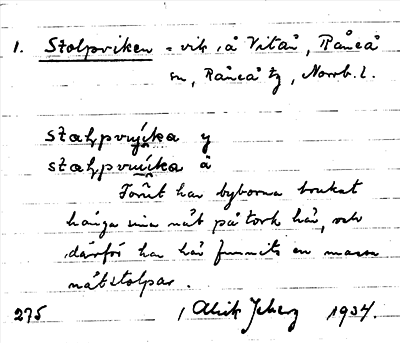 1. Stolpviken = vik i å Vitån, Råneå
sn, Råneå tg, Norrb. l.
stαlpvııka y
stαlpvııka ä
Förut ha byborna brukat
hänga sina nät på tork här, och
därför ha här funnits en massa
nätstolpar.
275 Alrik 1934.